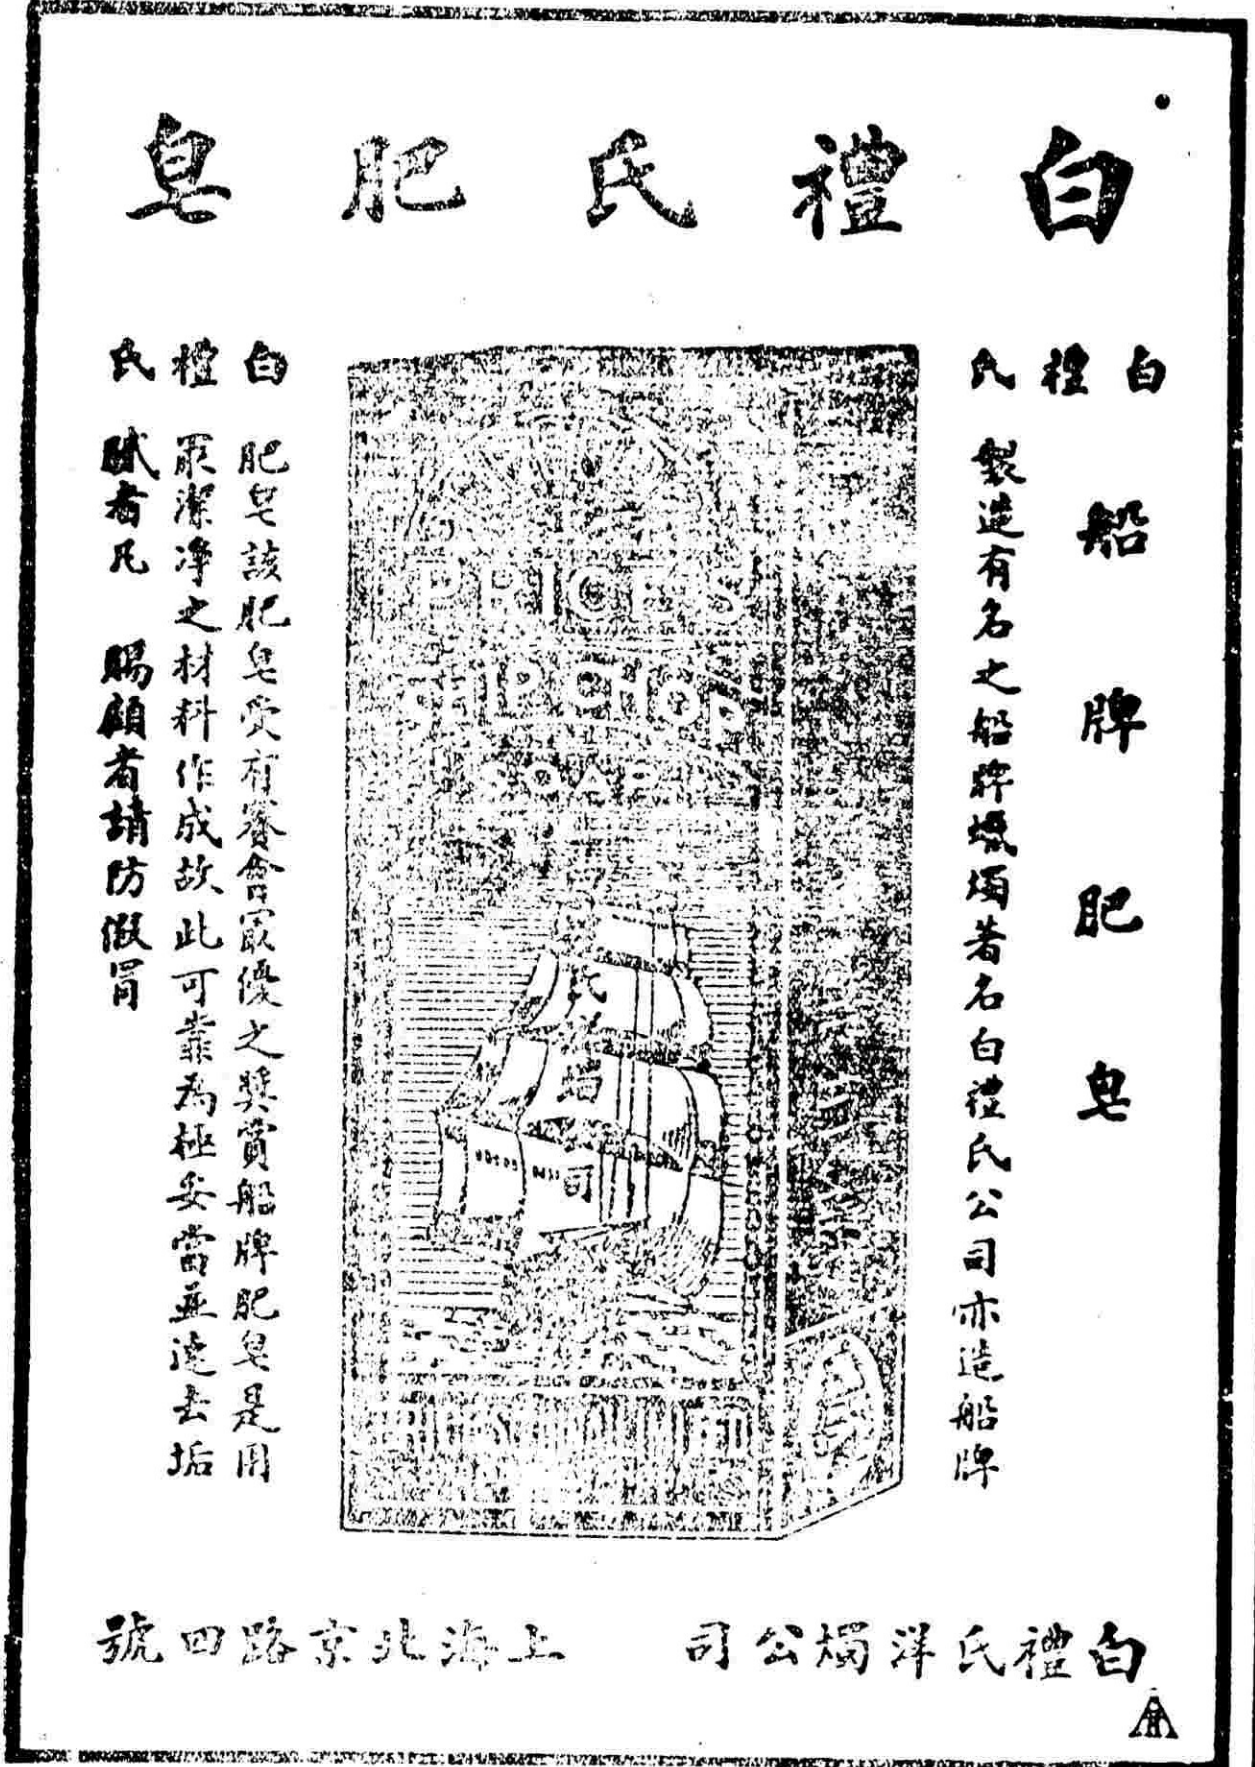 白禮氏肥皂
白禮氏
船牌肥皂
製造有名之船牌蠟燭著名白禮氏公司亦造船牌
PRICE'S
SOAP
氏
司
白禮氏
肥皂該肥皂受有賽會冣優之獎賞船牌肥皂是用
冣潔净之材料作成故此可靠為極妥當並速去垢
膩者凡 賜顧者請防假冒
白禮氏洋燭公司 上海北京路四號